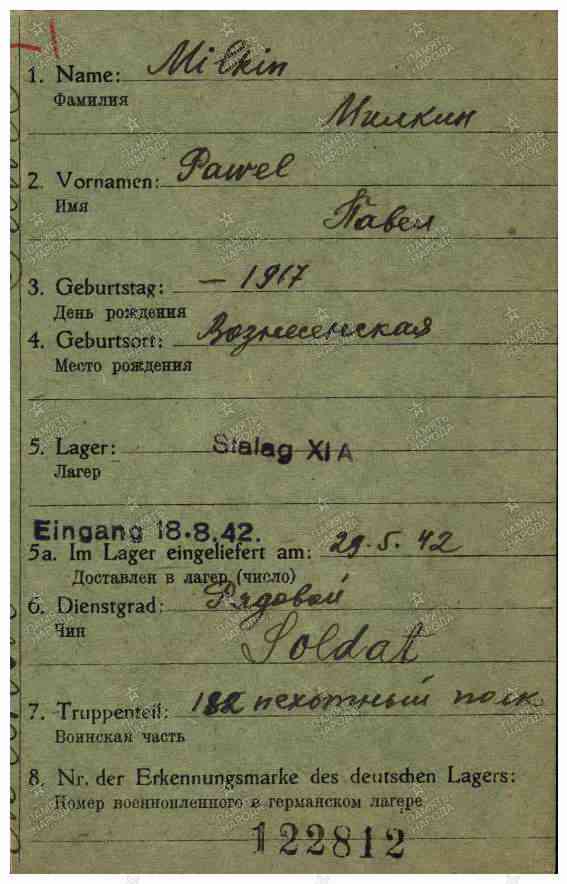 1. Name: Milkin
Фамилия
Милкин
2. Vornamen: Pawel
Имя
Павел
3. Geburtstag: – 1917
День рождения
4. Geburtsort: Вознесенская
Место рождения
5. Lager: Stalag XI A
Лагер
Eingang 18.8.42.
5a. Im Lager eingeliefert am: 29.5.42
Доставлен в лагер (число)
6. Dienstgrad: Рядовой
Чин
Soldat
7. Truppenteil: 182 пехотный полк
Воинская часть
8. Nr. der Erkennungsmarke des deutschen Lagers:
Номер военнопленного в германском лагере
122812
ПАМЯТЬ НАРОДА